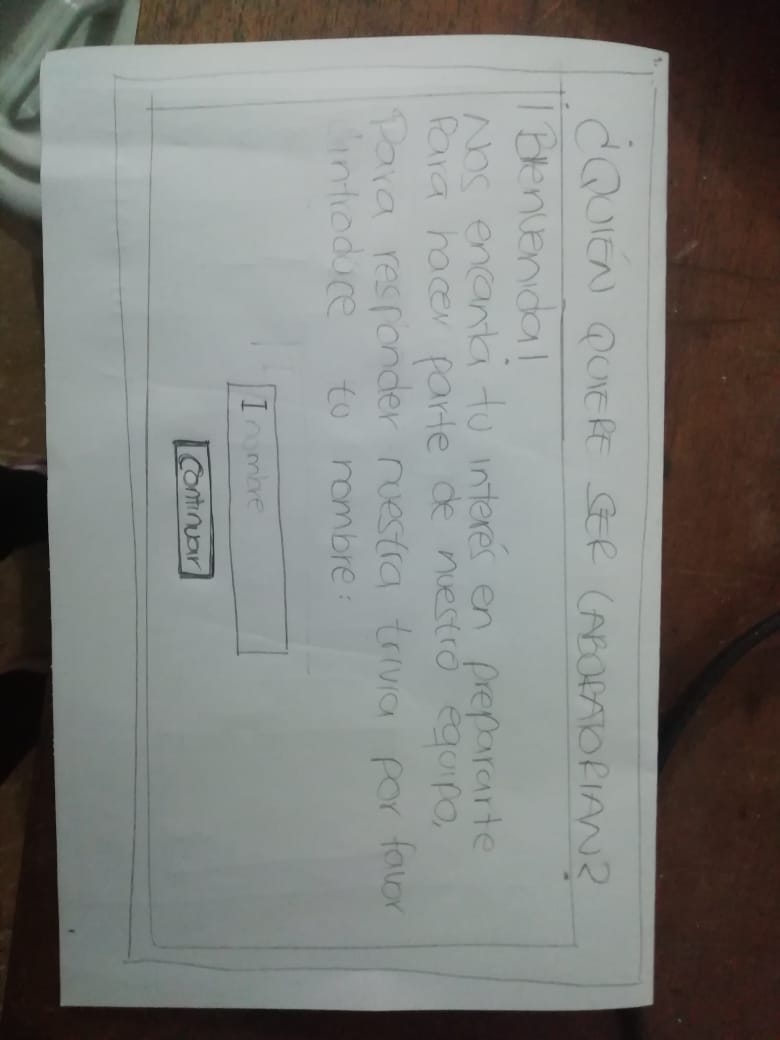 ¿QUIÉN QUIERE SER LABORATORIAN?
¡Bienvenida!
Nos encanta tu interés en prepararte
Para hacer parte de nuestro equipo,
Para responder nuestra trivia por favor
introduce tu nombre:
I nombre
Continuar